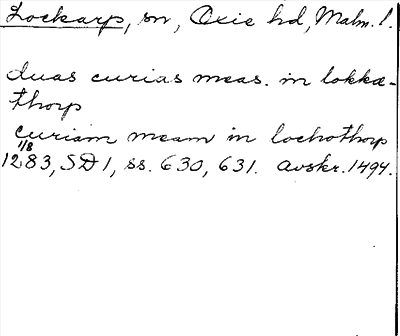 Lockarp, sn, Oxie hd, Malm. l.
duas curias meas. in lokkæ-
thorp
curiam meam in lochothorp
1/8
1283, SD 1, ss. 630, 631. avskr. 1494.